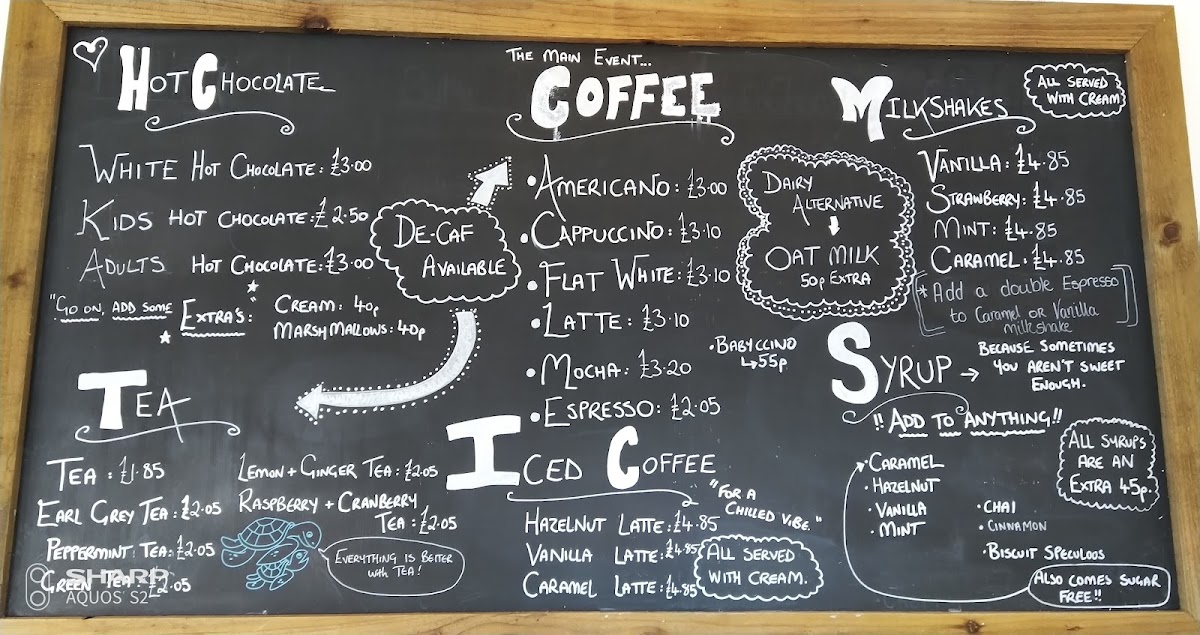 Hot Chocolate
White Hot Chocolate: £3.00
Kids Hot Chocolate: £2.50
Adults Hot Chocolate: £3.00
"Go on, add some Extra's:"
Cream: 40p
Marshmallows: 40p
De-Caf
Available
Tea
Tea: £1.85
Earl Grey Tea: £2.05
Peppermint Tea: £2.05
Green Tea: £2.05
Lemon + Ginger Tea: £2.05
Raspberry + Cranberry
Tea: £2.05
Everything is better
with Tea!
The Main Event...
Coffee
•Americano: £3.00
•Cappuccino: £3.10
•Flat White: £3.10
•Latte: £3.10
•Mocha: £3.20
•Espresso: £2.05
•Babyccino
↳55p
Dairy
Alternative
Oat Milk
50p Extra
Iced Coffee
"For a
chilled vibe."
Hazelnut Latte: £4.85
Vanilla Latte: £4.85
Caramel Latte: £4.85
All served
with cream.
Milkshakes
All served
with cream
Vanilla: £4.85
Strawberry: £4.85
Mint: £4.85
Caramel: £4.85
* Add a double Espresso
to Caramel or Vanilla
milkshake
Syrup →
Because sometimes
you aren't sweet
enough.
!! Add to Anything!!
All syrups
are an
extra 45p.
•Caramel
•Hazelnut
•Vanilla
•Mint
•Chai
•Cinnamon
•Biscuit Speculoos
Also comes sugar
free!!
SHARP
AQUOS S2